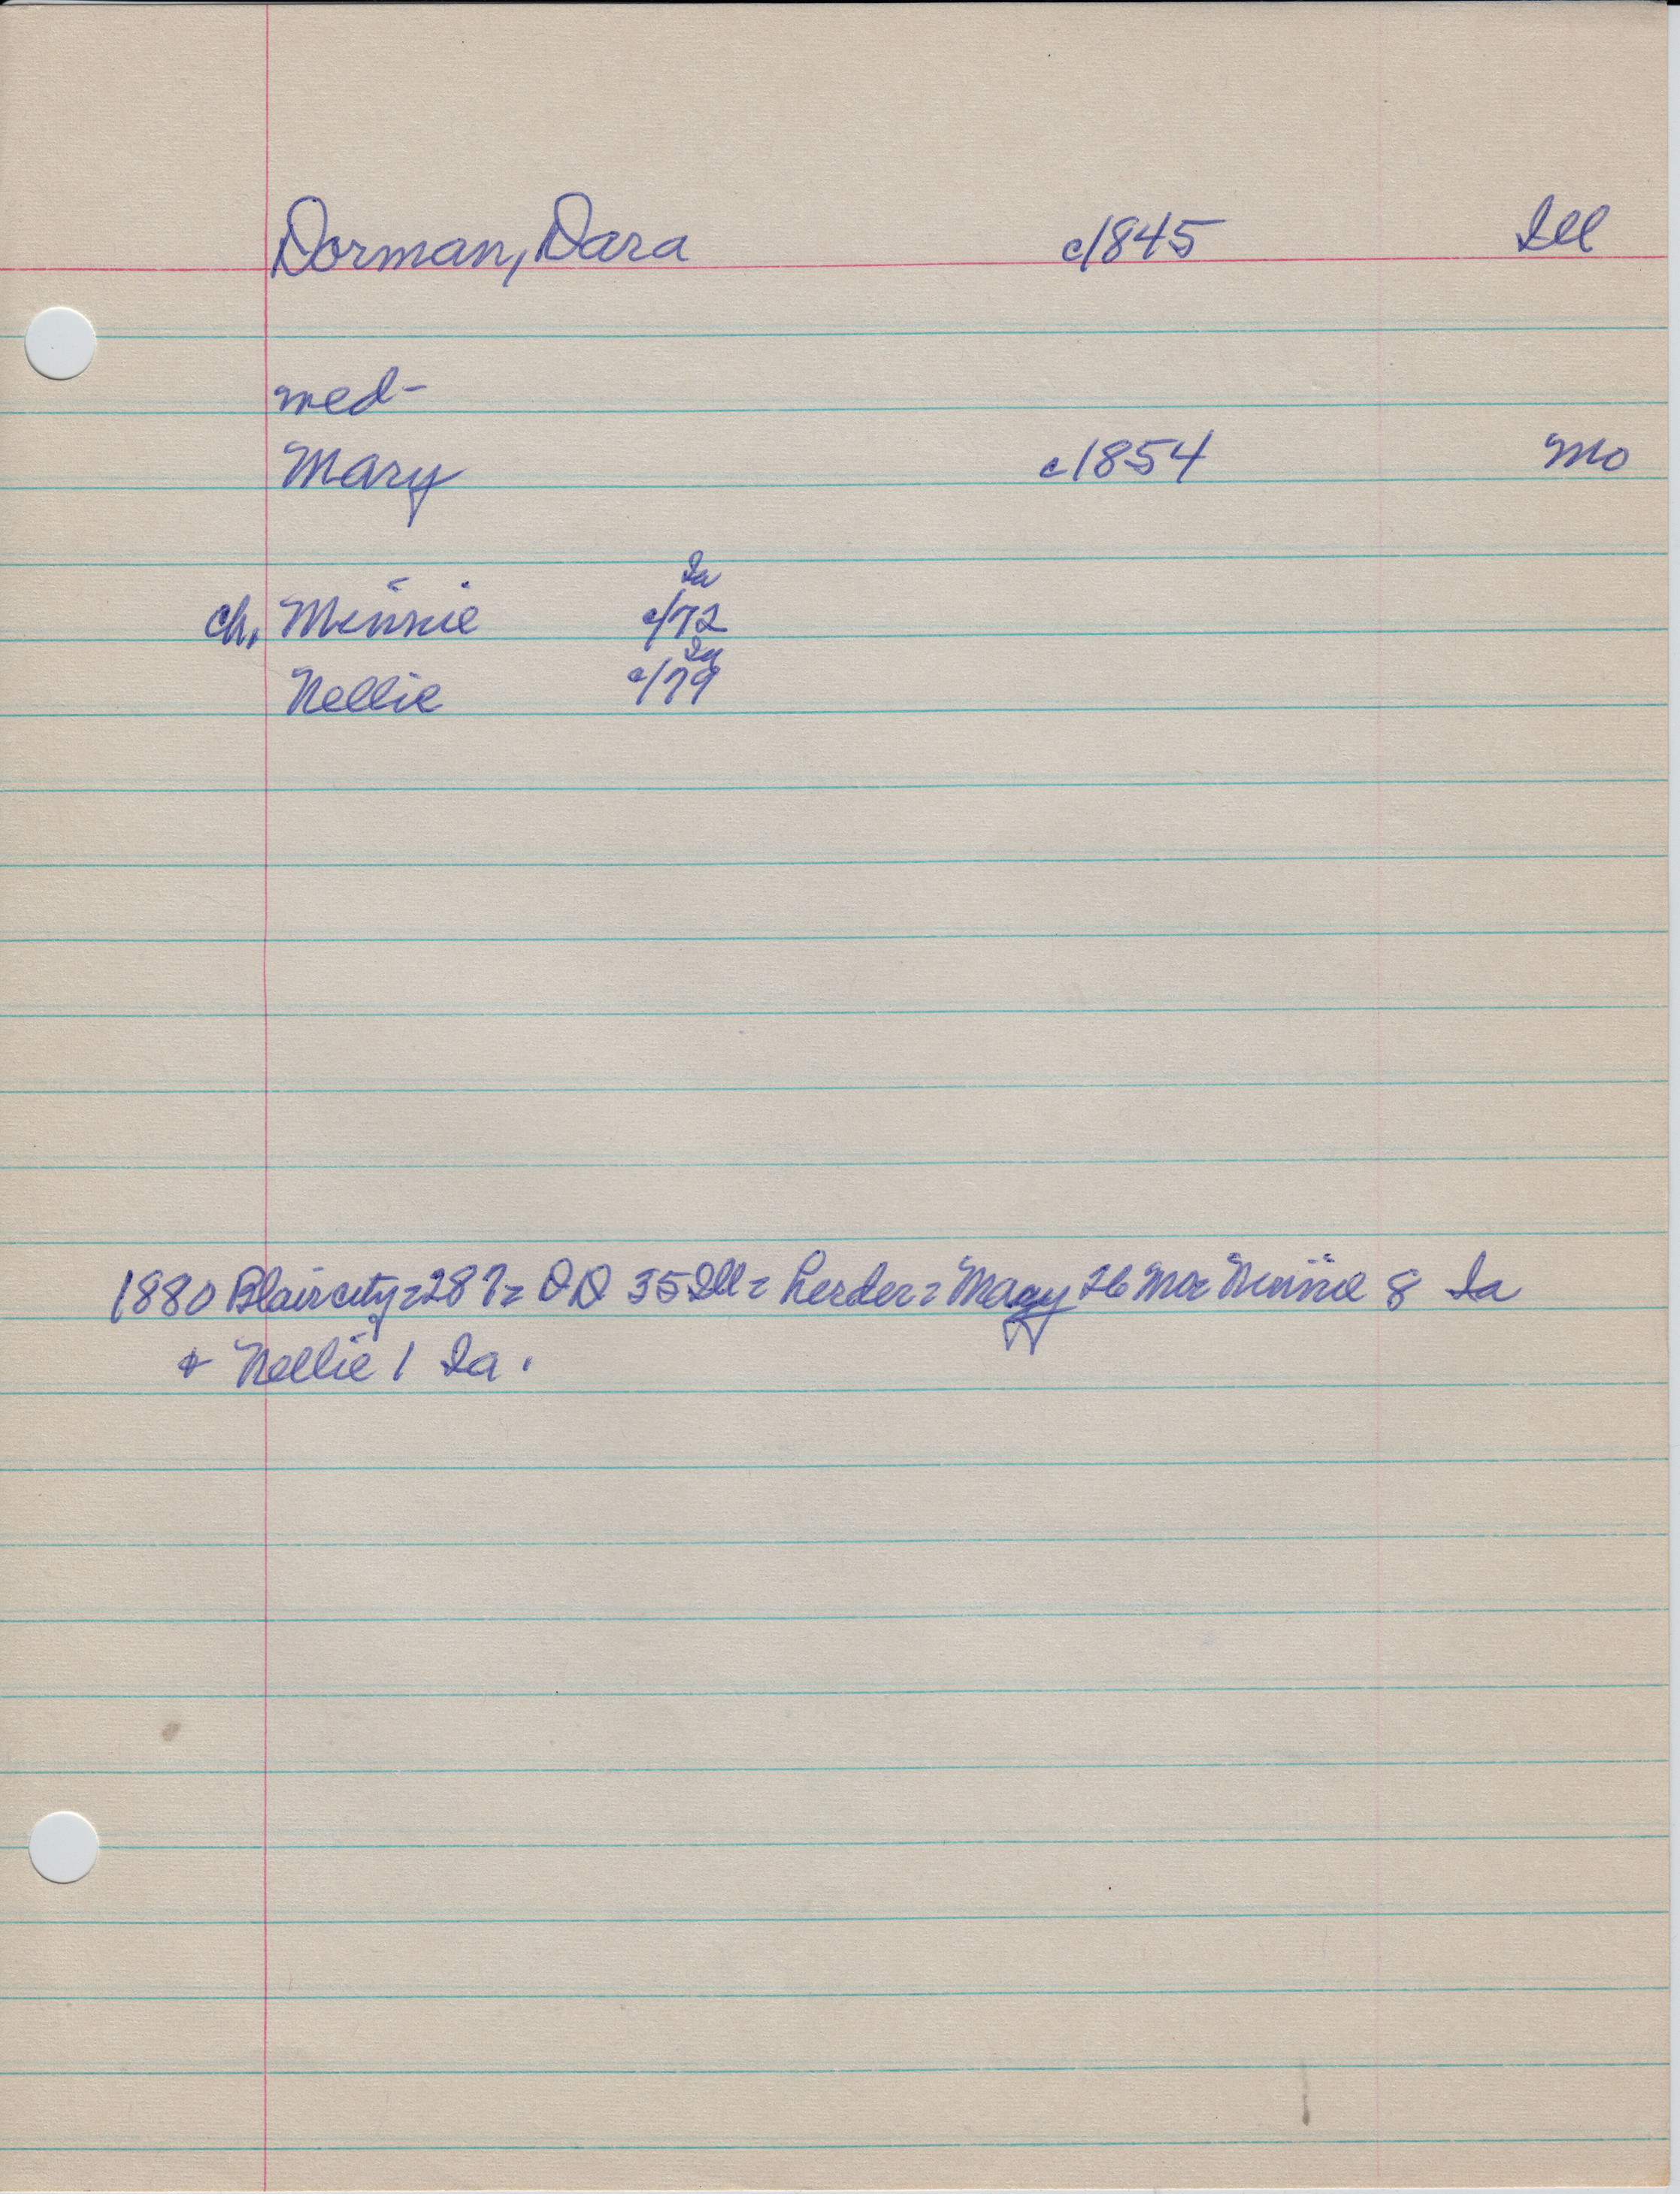 Dorman, Dara c/1845 Ill
med-
Mary c/1854 Mo
Ia
ch, Minnie c/72
Ia
Nellie c/79
1880 Blaircity = 287 = DD 35 Ill = = Mary 26 Mo = Minnie 8 Ia
+ Nellie 1 Ia.